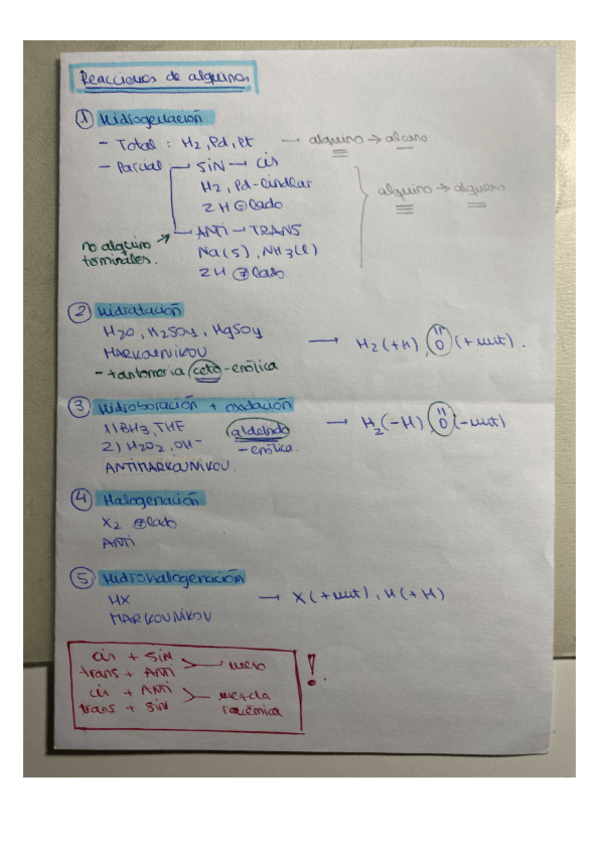 Reacciones de alquinos
① Hidrogenación
- Total : H2, Pd, Pt → alquino → alcano
- Parcial → SIN → cis
H2, Pd-Lindlar
2H = lado
alquino → alqueno
→ ANTI → TRANS
no alquino terminales.
Na(s), NH3(l)
2H ≠ lado
② Hidratación
H2O, H2SO4, HgSO4 → H2(+H), O (+sust).
MARKOVNIKOV
- tautomeria ceto-enólica
③ Hidroboración + oxidación
1) BH3, THF aldehido → H2(-H), O (-sust)
2) H2O2, OH- -enólica.
ANTIMARKOVNIKOV.
④ Halogenación
X2 ≠ lado
ANTI
⑤ Hidrohalogenación
HX → X(+sust), H(+H)
MARKOVNIKOV
cis + SIN
trans + ANTI > meso
cis + ANTI
trans + SIN > mezcla racémica
!